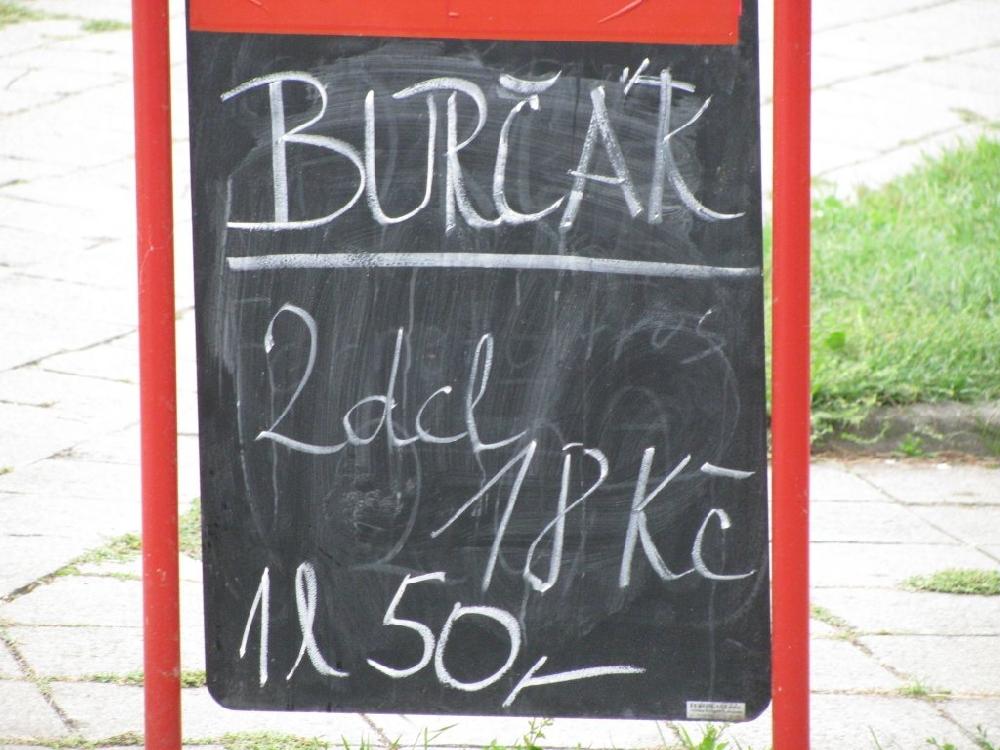 BURČÁK
2dcl
18 Kč
1l 50,-